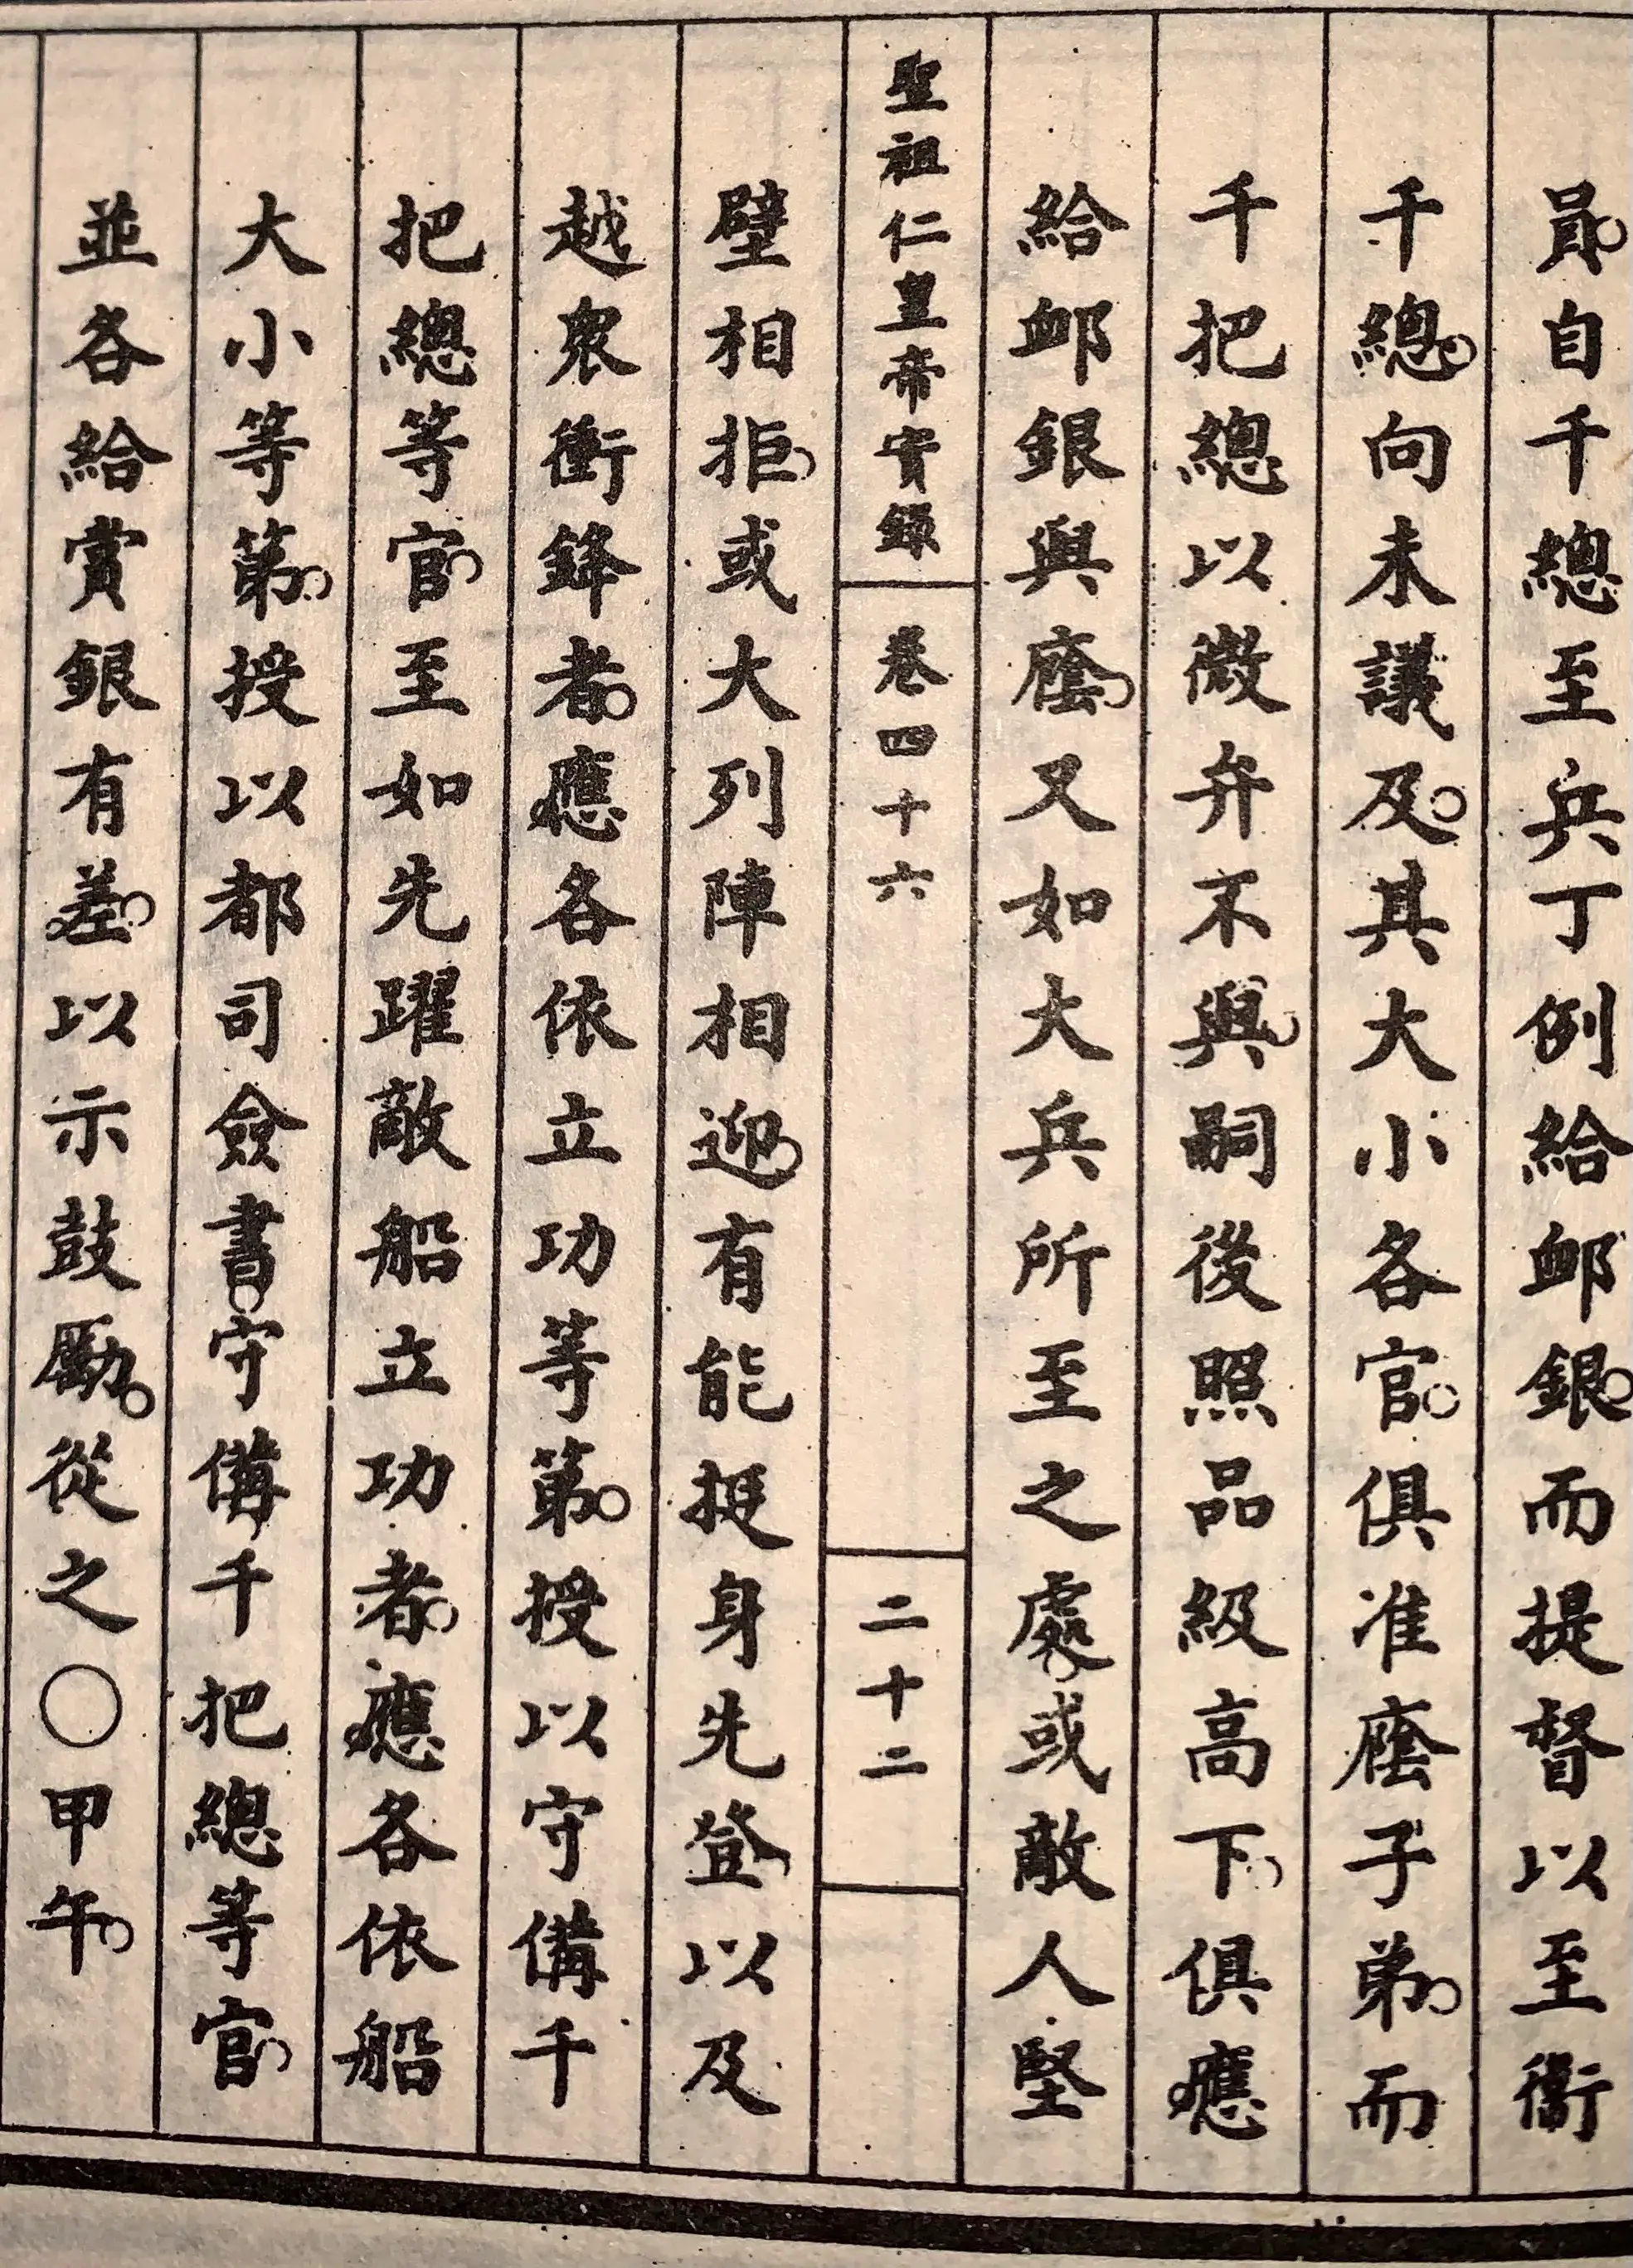 員。自千總至兵丁例給卹銀。而提督以至衞
千總。向未議及。其大小各官。俱准廕子弟。而
千把總以微弁不與。嗣後照品級高下。俱應
給卹銀與廕。又如大兵所至之處。或敵人堅
聖祖仁皇帝實錄 卷四十六 二十二
壁相拒。或大列陣相迎。有能挺身先登。以及
越衆衝鋒者。應各依立功等第。授以守備千
把總等官。至如先躍敵船立功者。應各依船
大小等第。授以都司僉書。守備千把總等官。
並各給賞銀有差。以示鼓勵。從之○甲午。